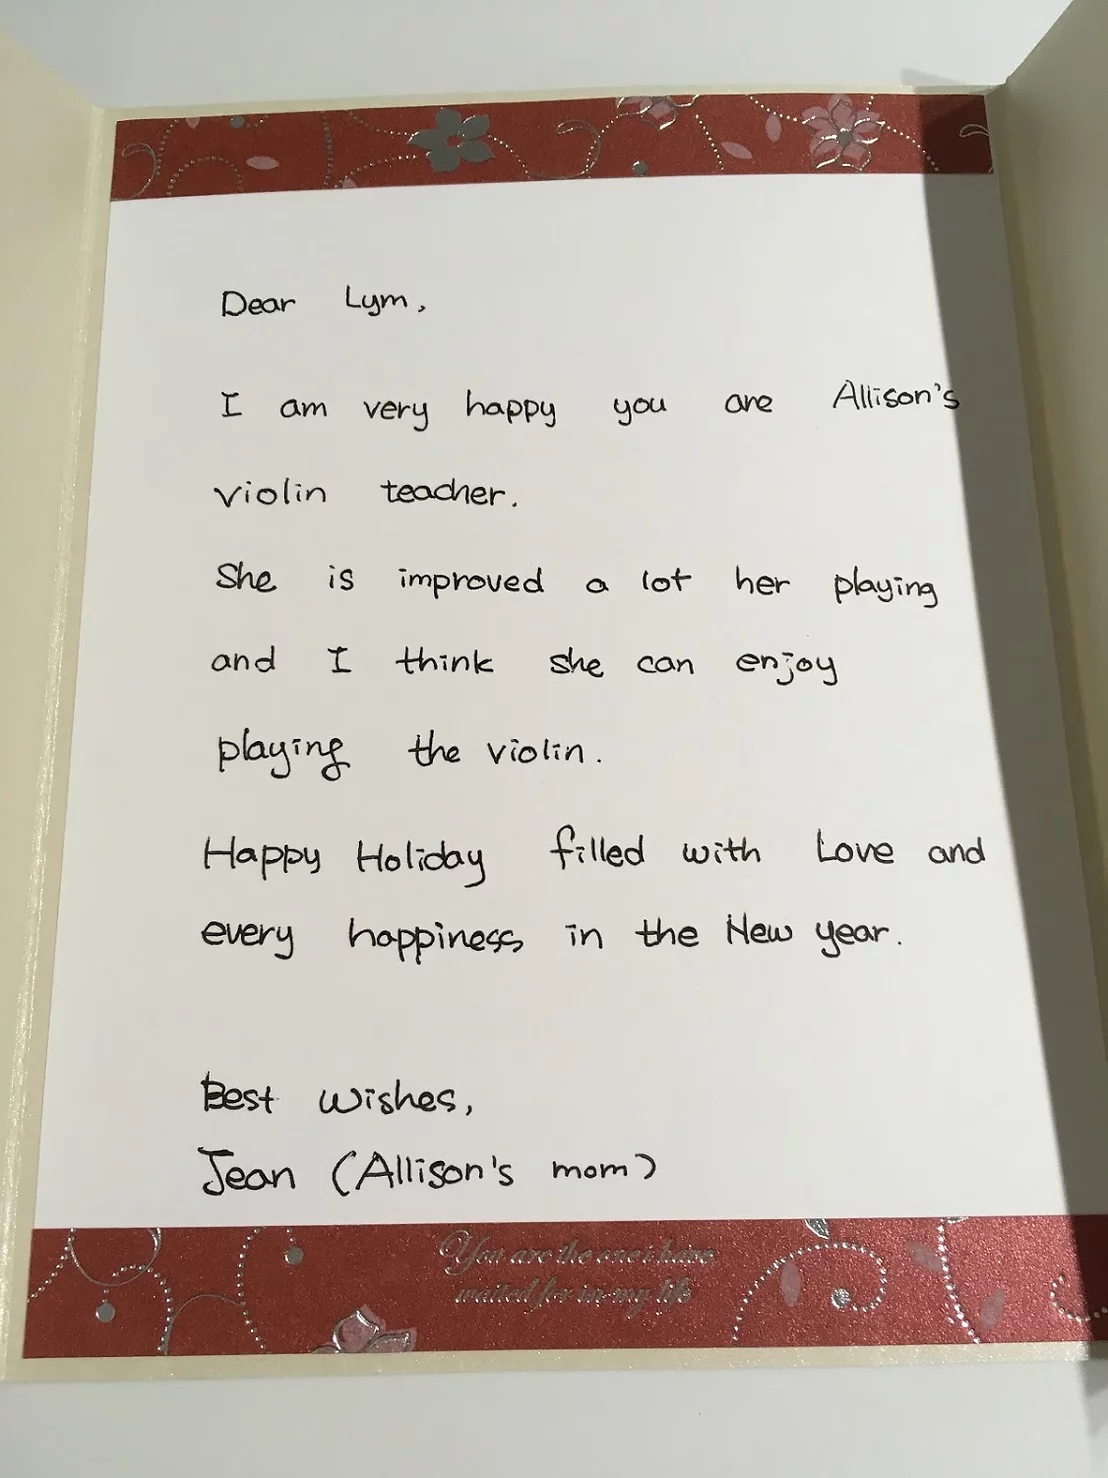 Dear Lym,
I am very happy you are Allison's
violin teacher.
She is improved a lot her playing
and I think she can enjoy
playing the violin.
Happy Holiday filled with Love and
every happiness in the New year.
Best wishes,
Jean (Allison's mom)
You are the one i have
waited for in my life